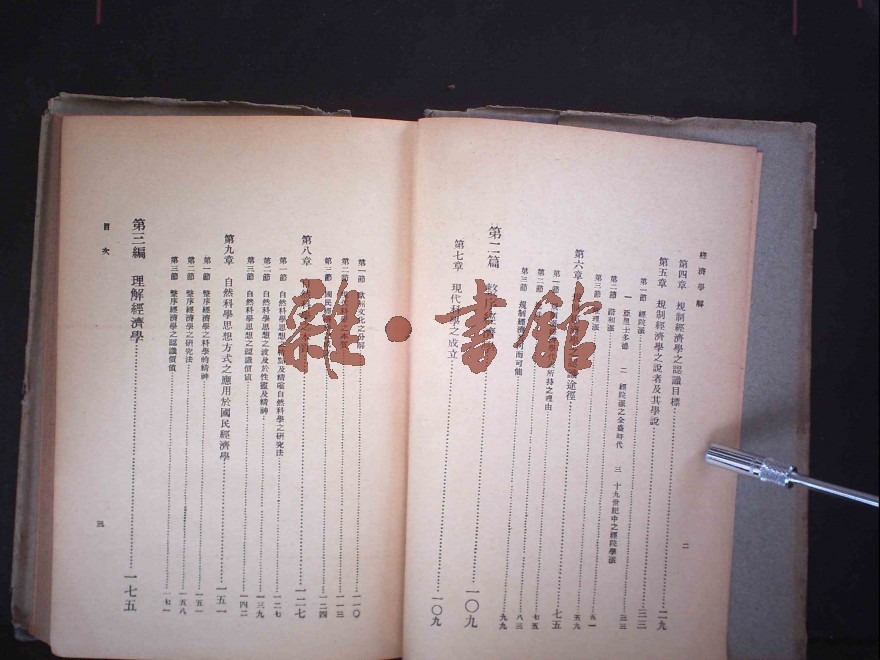 經濟學解
二
第四章　規制經濟學之認識目標……一九
第五章　規制經濟學之說者及其學說
第一節　經院派……二三
一　亞里士多德　二　經院派之全盛時代　三　十九世紀中之經院學派
第二節　諧和派……三三
第三節　理派……五一
第六章　途徑……五九
第一節　所持之理由……七五
第二節……七五
第三節　規制經濟而可能……八三
九九
第二篇　整序經濟……一〇九
第七章　現代科學之成立……一〇九
第一節　歐洲文化之分解……一一〇
第二節　科學之本質……一一三
第三節　國民經……一二四
第八章　自然科學……一二七
第一節　自然科學思想之特點及精確自然科學之研究法……一二七
第二節　自然科學思想之波及於性靈及精神……一三九
第三節　自然科學思想之認識價值……一四二
第九章　自然科學思想方式之應用於國民經濟學……一五一
第一節　整序經濟學之科學的精神……一五一
第二節　整序經濟學之研究法……一五八
第三節　整序經濟學之認識價值……一七一
第三編　理解經濟學……一七五
目次
三
雜·書館